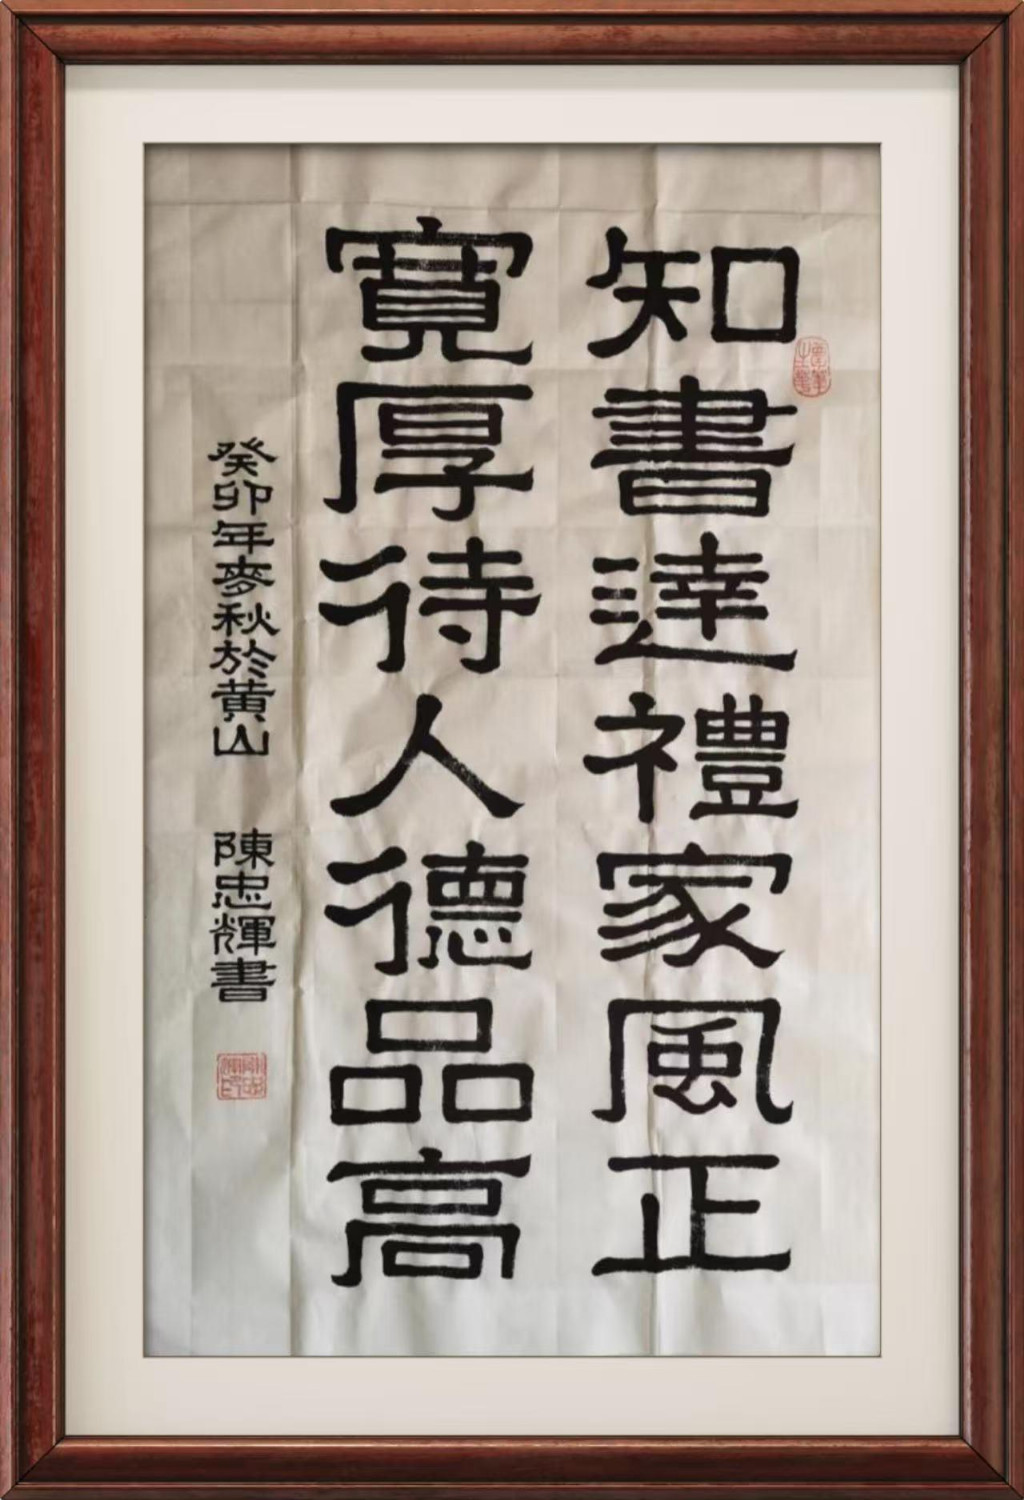 知書達禮家風正
寬厚待人德品高
癸卯年麥秋於黄山 陳忠輝書